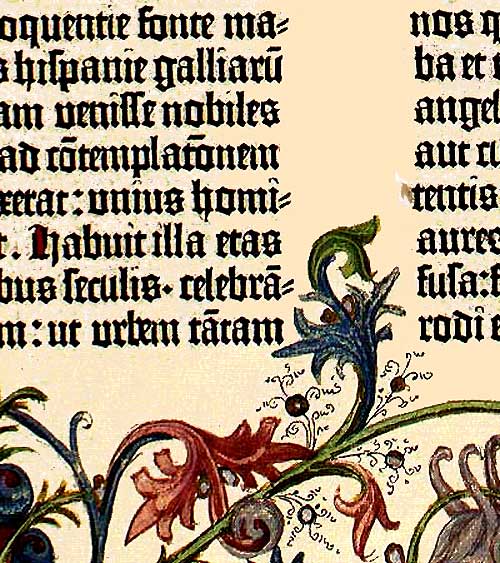 oquentie fonte ma⸗
s hispanie galliarū
am venisse nobiles
ad cōtemplatōnem
xerat: unius homi⸗
t. Habuit illa etas
bus seculis· celebrā⸗
m: ut urbem tātam
nos q
ba et
angel
aut cu
tentis
aureo
fusa:
rodi e